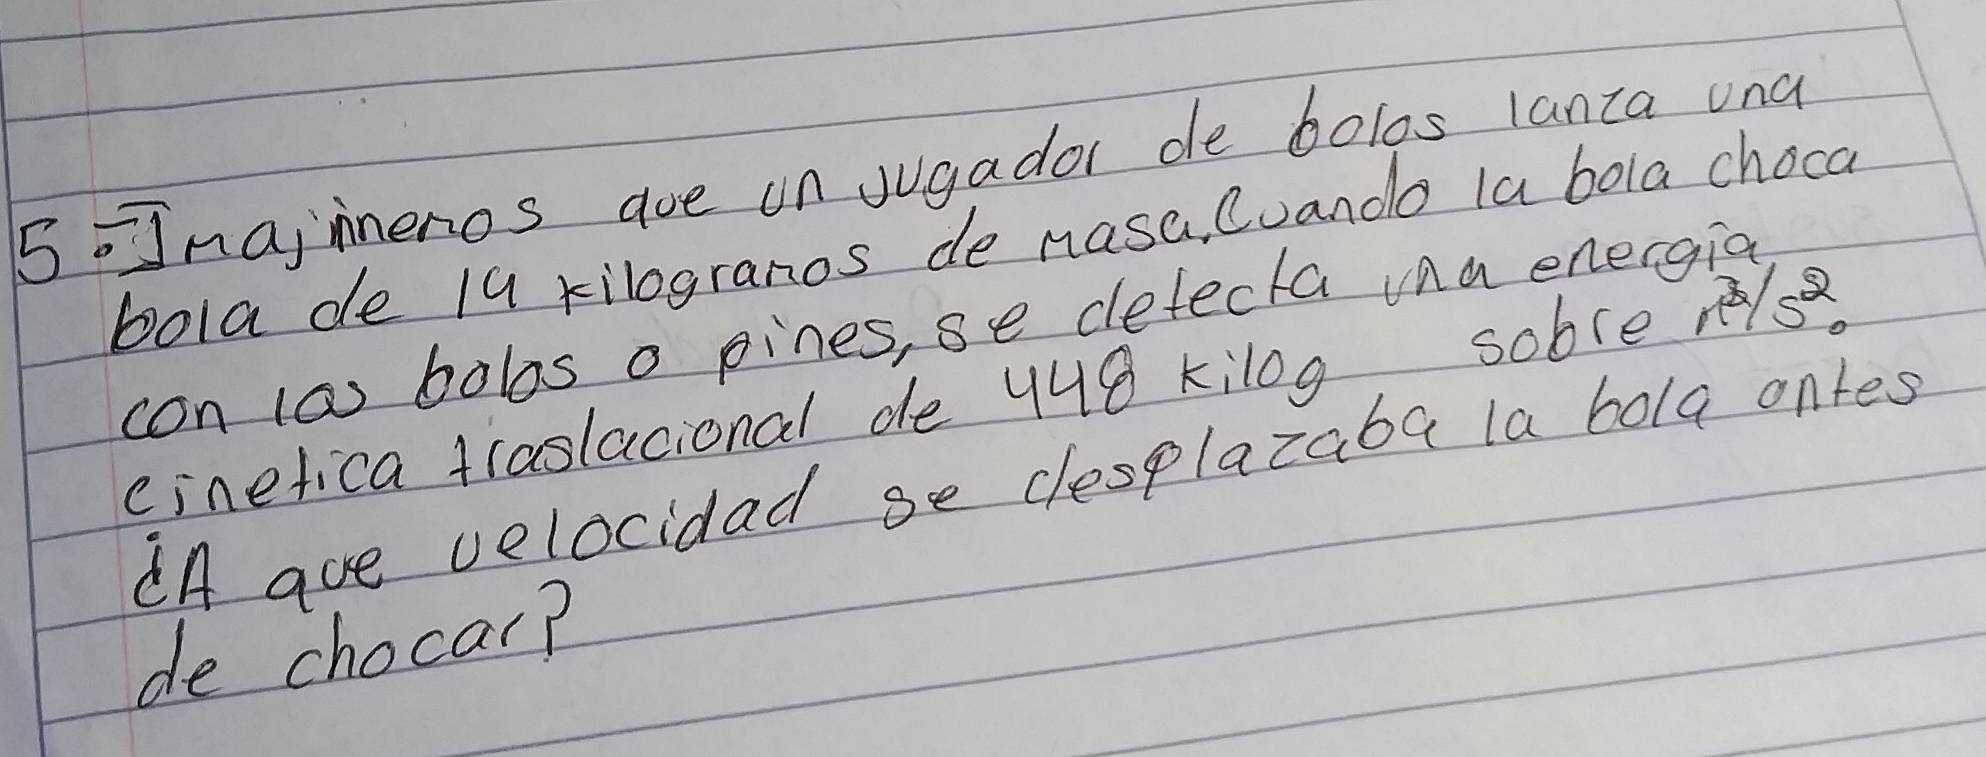 5.- Imajinemos que un jugador de bolos lanza una
bola de 14 kilogramos de masa. Cuando la bola choca
con las bolos o pines, se detecta una energia
cinetica traslacional de 448 kilog sobre m²/s².
¿A que velocidad se desplazaba la bola antes
de chocar?